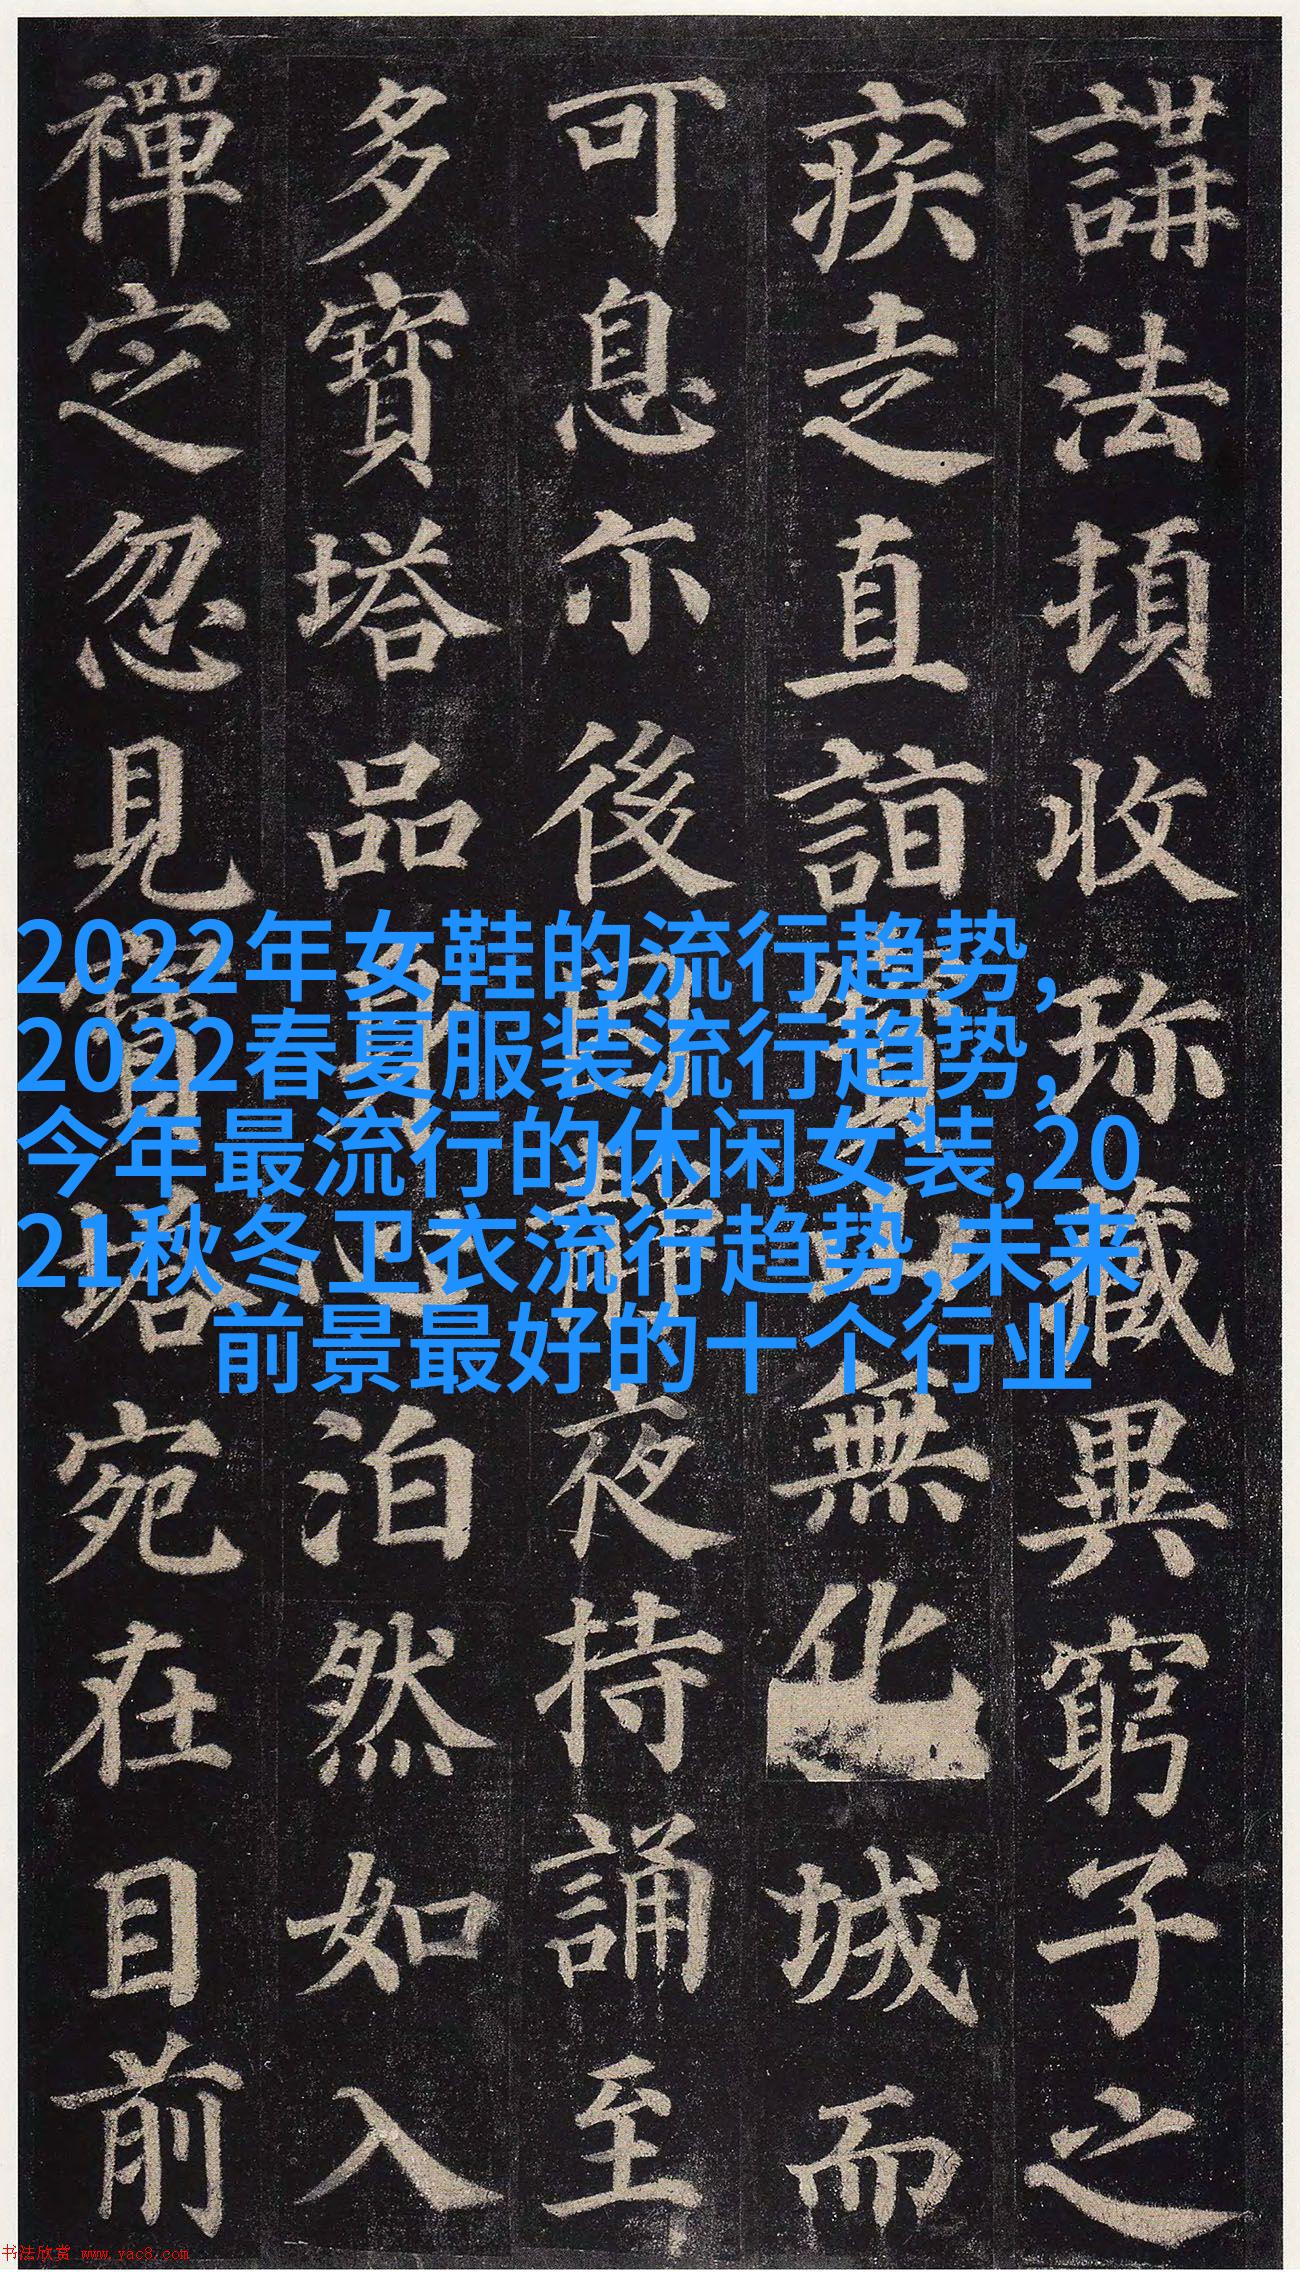 講法頓收珎藏異窮子之
疾走直詣寶山無化城而
可息尒後因静夜持誦至
多寶塔品身心泊然如入
禪定忽見寶塔宛在目前
2022年女鞋的流行趋势,
2022春夏服装流行趋势,
今年最流行的休闲女装,20
21秋冬卫衣流行趋势,未来
前景最好的十个行业
书法欣赏 www.yac8.com